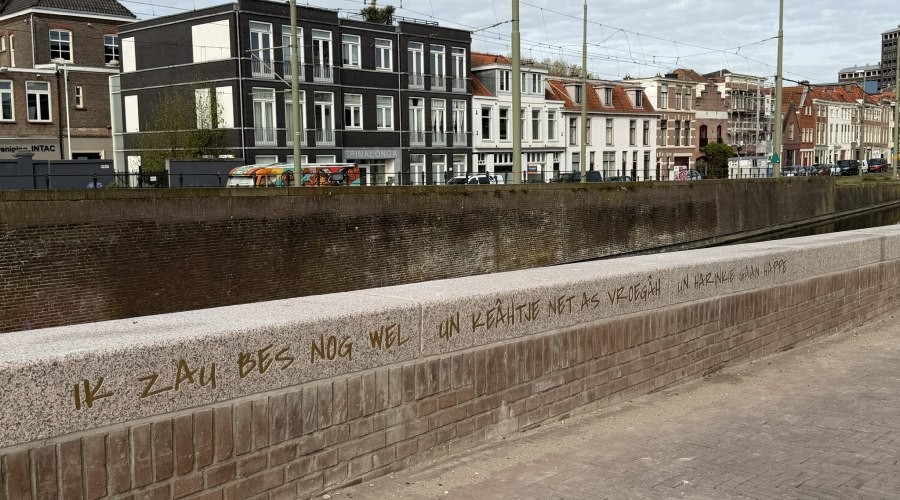 Vereniging INTAC
PINALONGA
IK ZAU BES NOG WEL UN KEÂHTJE NET AS VROEGÂH UN HARINKIE GAAN HAPPE